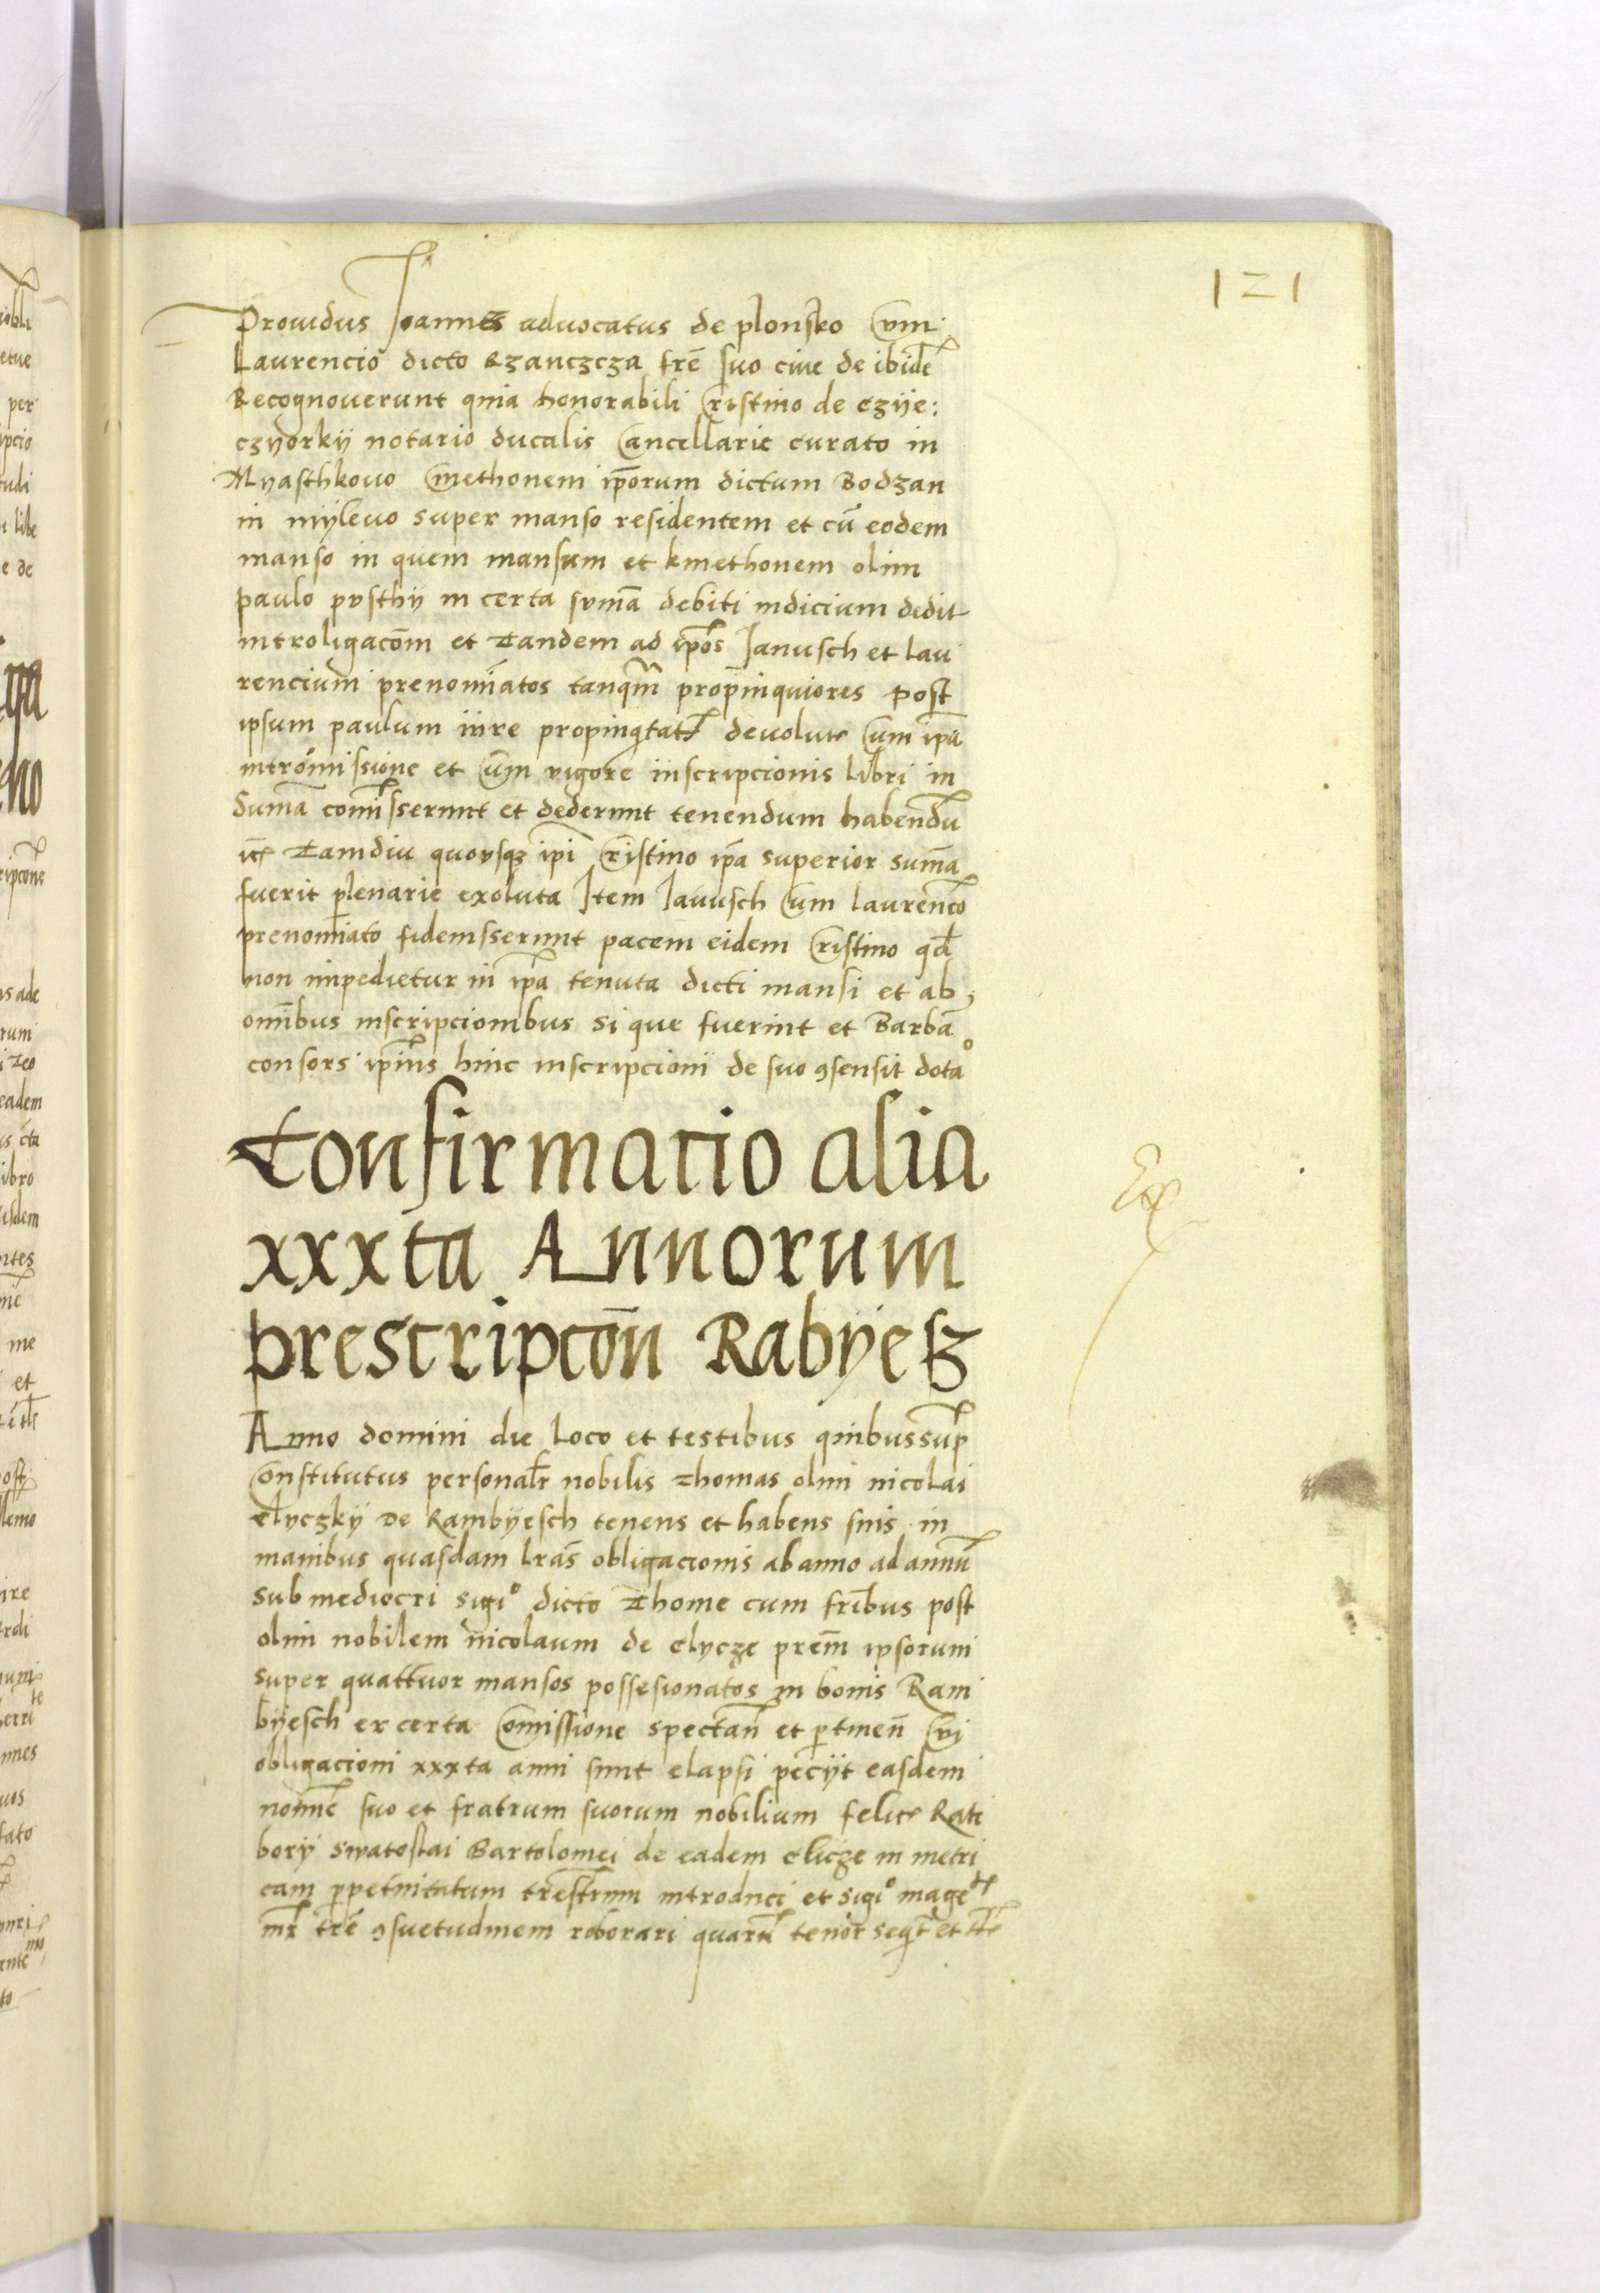 121
Prouidus Joannes aduocatus de plonsko cum
Laurencio dicto Rzanczcza frē suo ciue de ibidē
Recognouerunt quia honorabili cristino de czije:
czyorkij notario ducalis cancellarie curato in
Myasthkouo cmethonem ip̄orum dictum Bodzan
in mijleuo super manso residentem et cū eodem
manso in quem mansum et kmethonem olim
paulo pusthij in certa sum̄a debiti indicium dedit
introligacōm et tandem ad ip̄os Janusch et lau
rencium prenomīatos tanqm̄ propinquiores post
ipsum paulum iure propinqtat devolute cum ip̄a
intromissione et cum vigore inscripcionis libri in
Sumā comisserunt et dederunt tenendum habendū
tamdiu quousqz ipi cristino ip̄a superior sum̄a
fuerit plenarie exoluta Item Janusch cum laurencō
prenomīato fidemsserunt pacem eidem cristino qd
non impedietur in ip̄a tenuta dicti mansi et ab
omībus inscripcionibus si que fuerint et Barbā
consors ipīus huic inscripcionij de suo ꝯsensit dotao
Confirmacio alia
xxxta Annorum
prescripcōn Rabyesz
Anno domini die loco et testibus quibussup
Constitutus personalr nobilis Thomas olim nicolai
Clyczkij de Rambyesch tenens et habens suis in
manibus quasdam lrās obligacionis ab anno ad annū
sub mediocri sigio dicto Thome cum frībus post
olim nobilem nicolaum de clycze prēm ipsorum
super quattuor mansos possesionatos in bonis Ram
byesch ex certa comissione spectan̄ et ptinen̄ cui
obligacioni xxxta anni sunt elapsi pecijt easdem
nomīe suo et fratrum suorum nobilium felic Rati
borij swatoslai Bartolomei de eadem clicze in metri
cam ppetuitatum trēstrium introduci et sigio mage
trē ꝯsuetudinem roborari quarū tenor seqt et